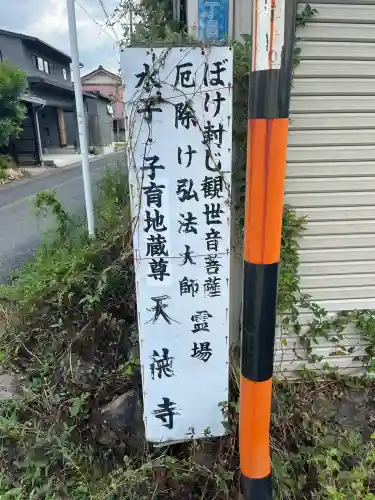 ぼけ封じ観世音菩薩
厄除け弘法大師
霊場
水子・子育地蔵尊
天徳寺